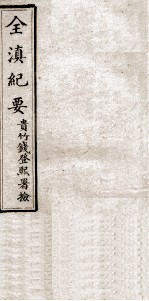 全滇紀要
貴竹錢登熙署檢